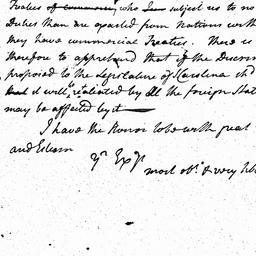 Treaties of commerce, who subject us to no
Duties than are exacted from Nations with
they have commercial Treaties. There is
therefore to apprehend that if the Discrim
proposed to the Legislature of Carolina sh
it will be retaliated by all the foreign Stat
may be affected by it
I have the Honor to be with great
and Esteem
Yr Excys
most obt & very hble